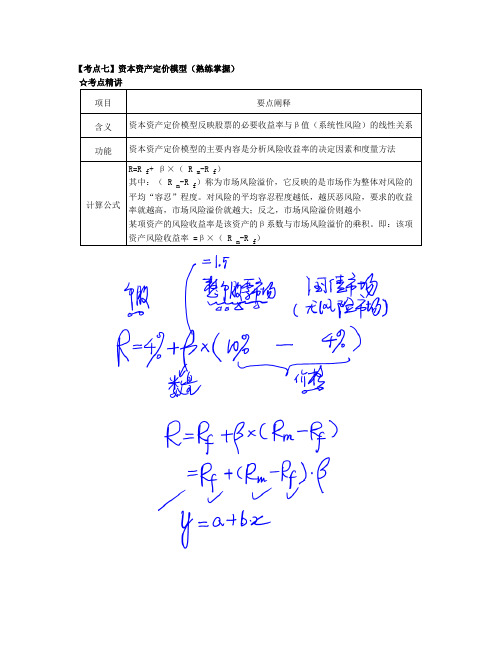 【考点七】资本资产定价模型（熟练掌握）
☆考点精讲
项目 要点阐释
含义 资本资产定价模型反映股票的必要收益率与β值（系统性风险）的线性关系
功能 资本资产定价模型的主要内容是分析风险收益率的决定因素和度量方法
计算公式
R=R f+ β×（ R m-R f）
其中：（ R m-R f）称为市场风险溢价，它反映的是市场作为整体对风险的
平均“容忍”程度。对风险的平均容忍程度越低，越厌恶风险，要求的收益
率就越高，市场风险溢价就越大；反之，市场风险溢价则越小
某项资产的风险收益率是该资产的β系数与市场风险溢价的乘积。即：该项
资产风险收益率 =β×（ R m-R f）
=1.5
整个股票市场 国债市场
（无风险市场）
R=4%+β×(10% - 4%)
数量 价格
R=Rf+β×(Rm-Rf)
=Rf+(Rm-Rf)·β
y=a+bx